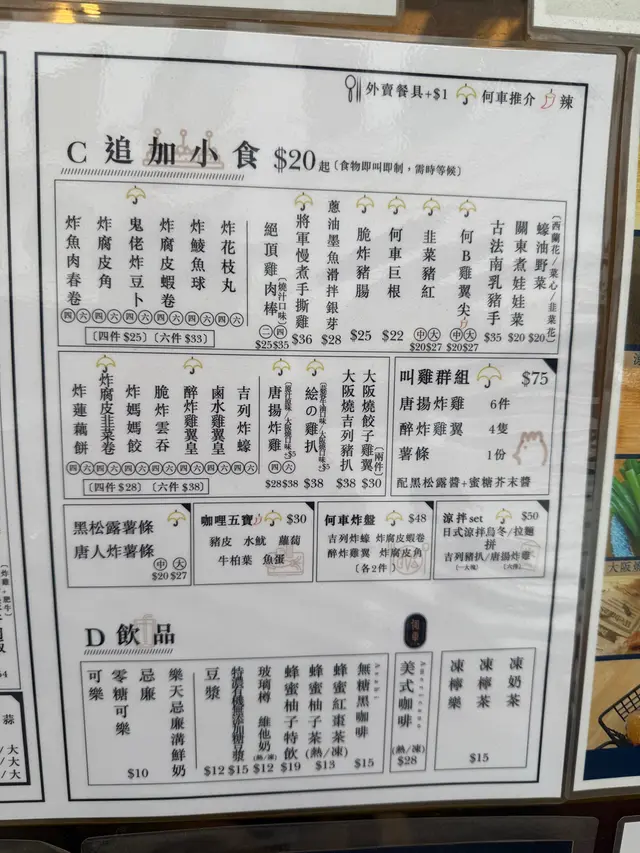 外賣餐具+$1 何車推介 辣
C 追加小食 $20起〔食物即叫即制，需時等候〕
〔西蘭花/菜心/韭菜花〕
蠔油野菜 $20
關東煮娃娃菜 $20
古法南乳豬手 $35
何B雞翼尖 中 大 $20 $27
韭菜豬紅 中 大 $20 $27
何車巨根 $22
脆炸豬腸 $25
蔥油墨魚滑拌銀芽 $28
將軍慢煮手撕雞 $36
絕頂雞肉棒〔燒汁口味〕 二 四 $25 $35
炸花枝丸 四 六
炸鯪魚球 四 六
炸腐皮蝦卷 四 六
鬼佬炸豆卜 四 六
炸腐皮角 四 六
炸魚肉春卷 四 六
〔四件 $25〕〔六件 $33〕
大阪燒餃子雞翼〔兩件〕 $30
大阪燒吉列豬扒 $38
繪の雞扒 $38
唐揚炸雞 四 六 $28 $38
吉列炸蠔 四 六
鹵水雞翼皇 四 六
醉炸雞翼皇 四 六
脆炸雲吞 四 六
炸媽媽餃 四 六
炸腐皮韭菜卷 四 六
炸蓮藕餅 四 六
〔四件 $28〕〔六件 $38〕
叫雞群組 $75
唐揚炸雞 6件
醉炸雞翼 4隻
薯條 1份
配黑松露醬+蜜糖芥末醬
黑松露薯條
唐人炸薯條
中 大
$20 $27
咖哩五寶 $30
豬皮 水魷 蘿蔔
牛柏葉 魚蛋
何車炸盤 $48
吉列炸蠔 炸腐皮蝦卷
醉炸雞翼 炸腐皮角
〔各2件〕
涼拌set $50
日式涼拌烏冬/拉麵
拼
吉列豬扒/唐揚炸雞
〔一大塊〕 〔六件〕
D 飲品
凍奶茶
凍檸茶
凍檸樂
$15
美式咖啡
Americano
(熱/凍)
$28
無糖黑咖啡 $15
蜂蜜紅棗茶
蜂蜜柚子茶
(熱/凍)
$13
蜂蜜柚子特飲 $19
玻璃樽 維他奶 (熱/凍) $12
$15
豆漿 $12
樂天忌廉溝鮮奶
忌廉
零糖可樂
可樂
$10